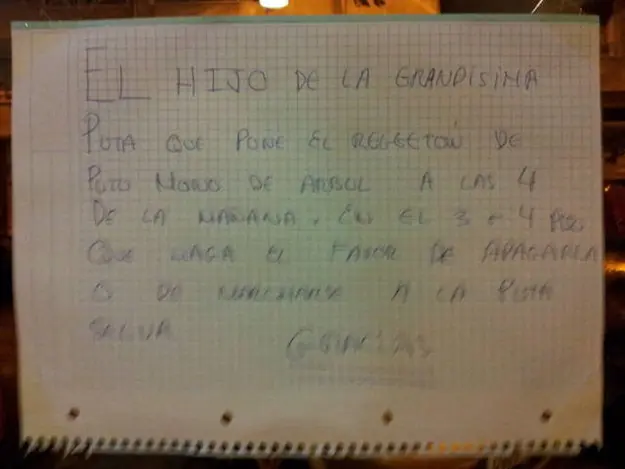 EL HIJO DE LA GRANDISIMA
PUTA QUE PONE EL REGGETON DE
PUTO MONO DE ARBOL A LAS 4
DE LA MAÑANA, EN EL 3 o 4 PISO
QUE HAGA EL FAVOR DE APAGARLA
O DE MARCHARSE A LA PUTA
SELVA GRACIAS